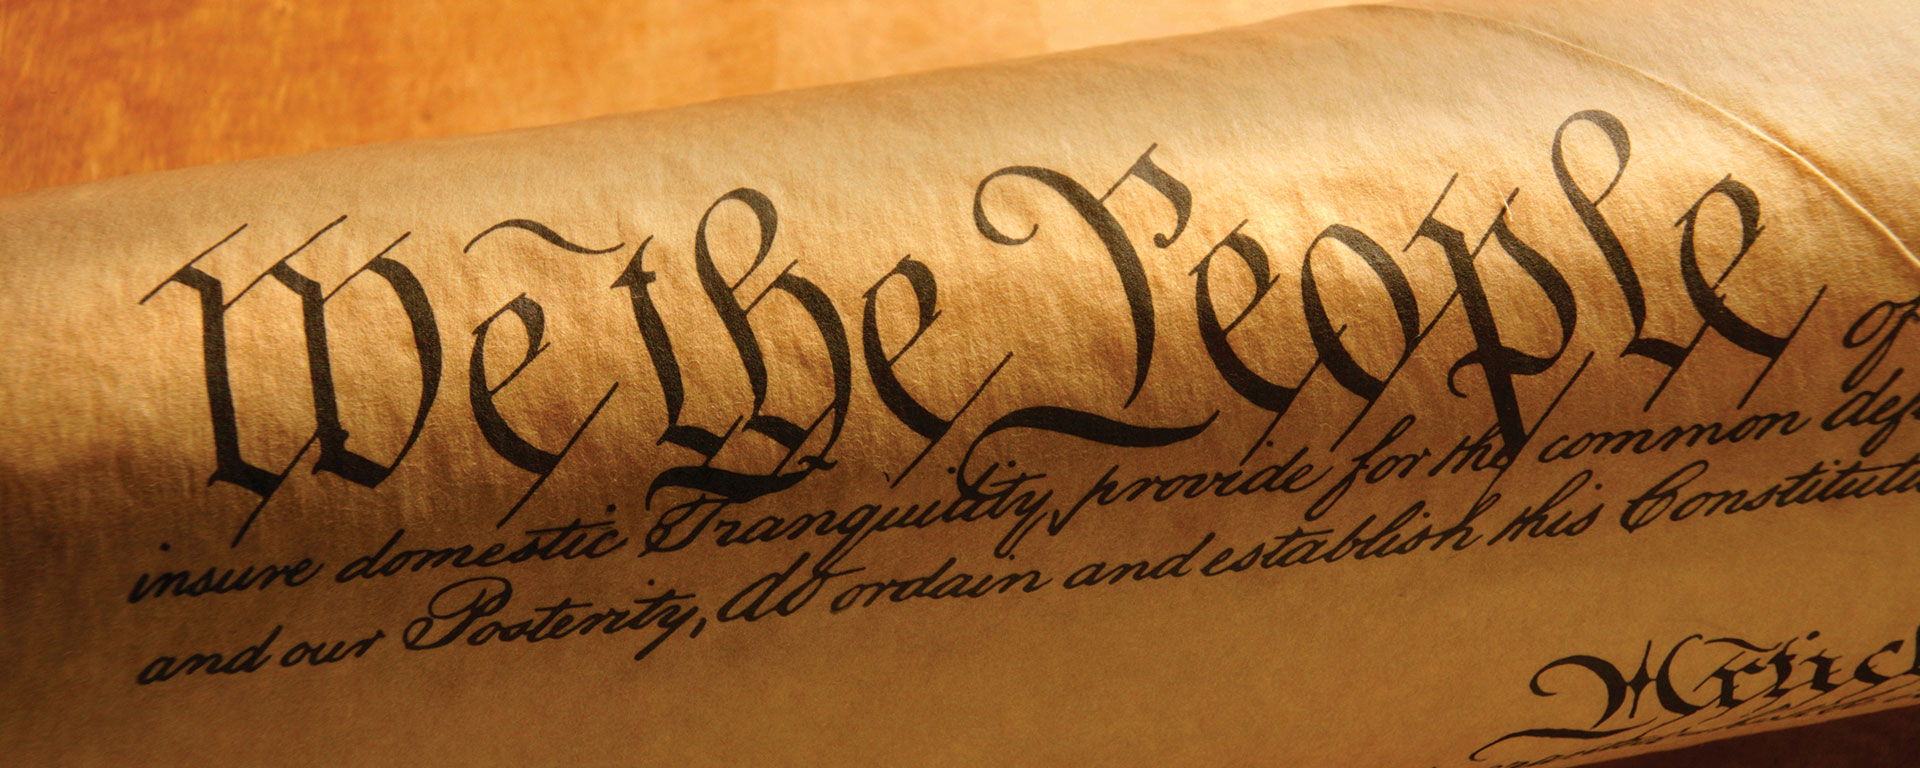 We the People of
insure domestic Tranquility, provide for the common def
and our Posterity, do ordain and establish this Constituti
Articl